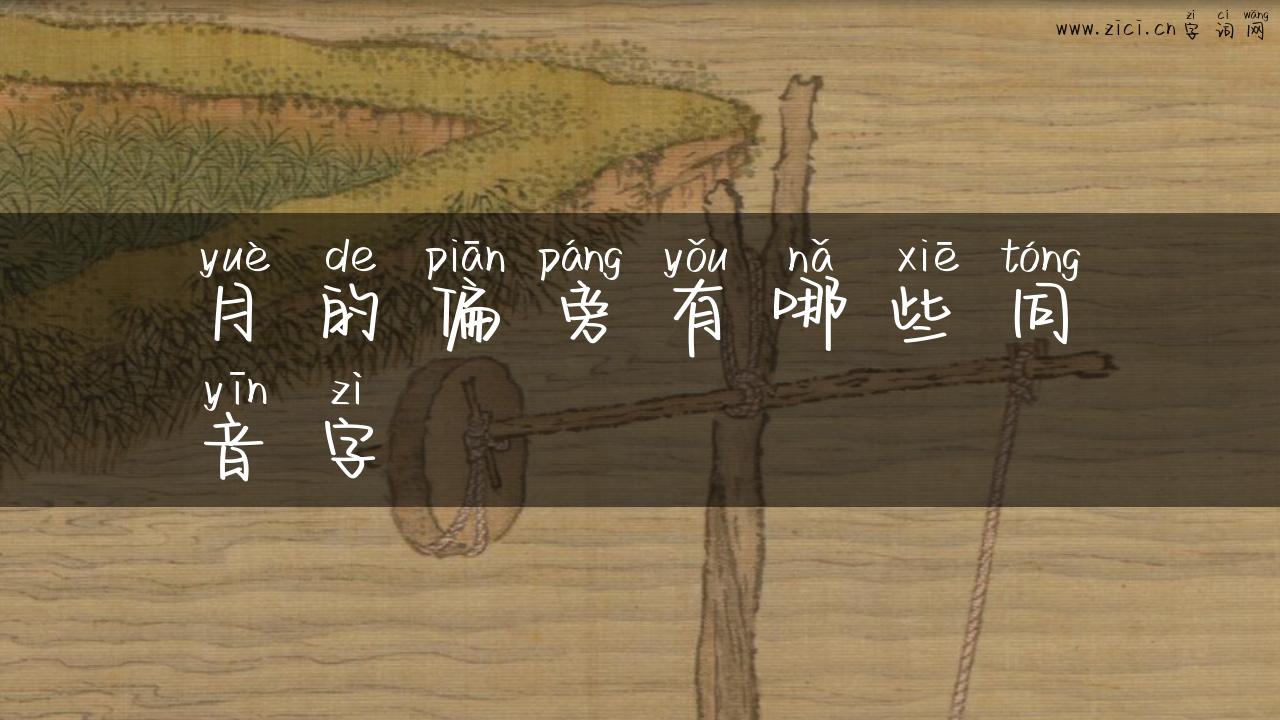 zì cí wǎng
www.zici.cn 字 词 网
yuè de piān páng yǒu nǎ xiē tóng
月 的 偏 旁 有 哪 些 同
yīn zì
音 字